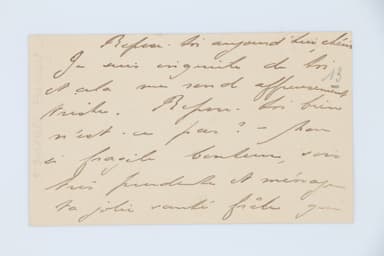 Repose-toi aujourd'hui chérie
Je suis inquiète de toi
13
et cela me rend affreusement
triste. Repose-toi bien
n'est-ce pas? -
si fragile bonheur, sois
très prudente et ménage
ta jolie santé frêle que